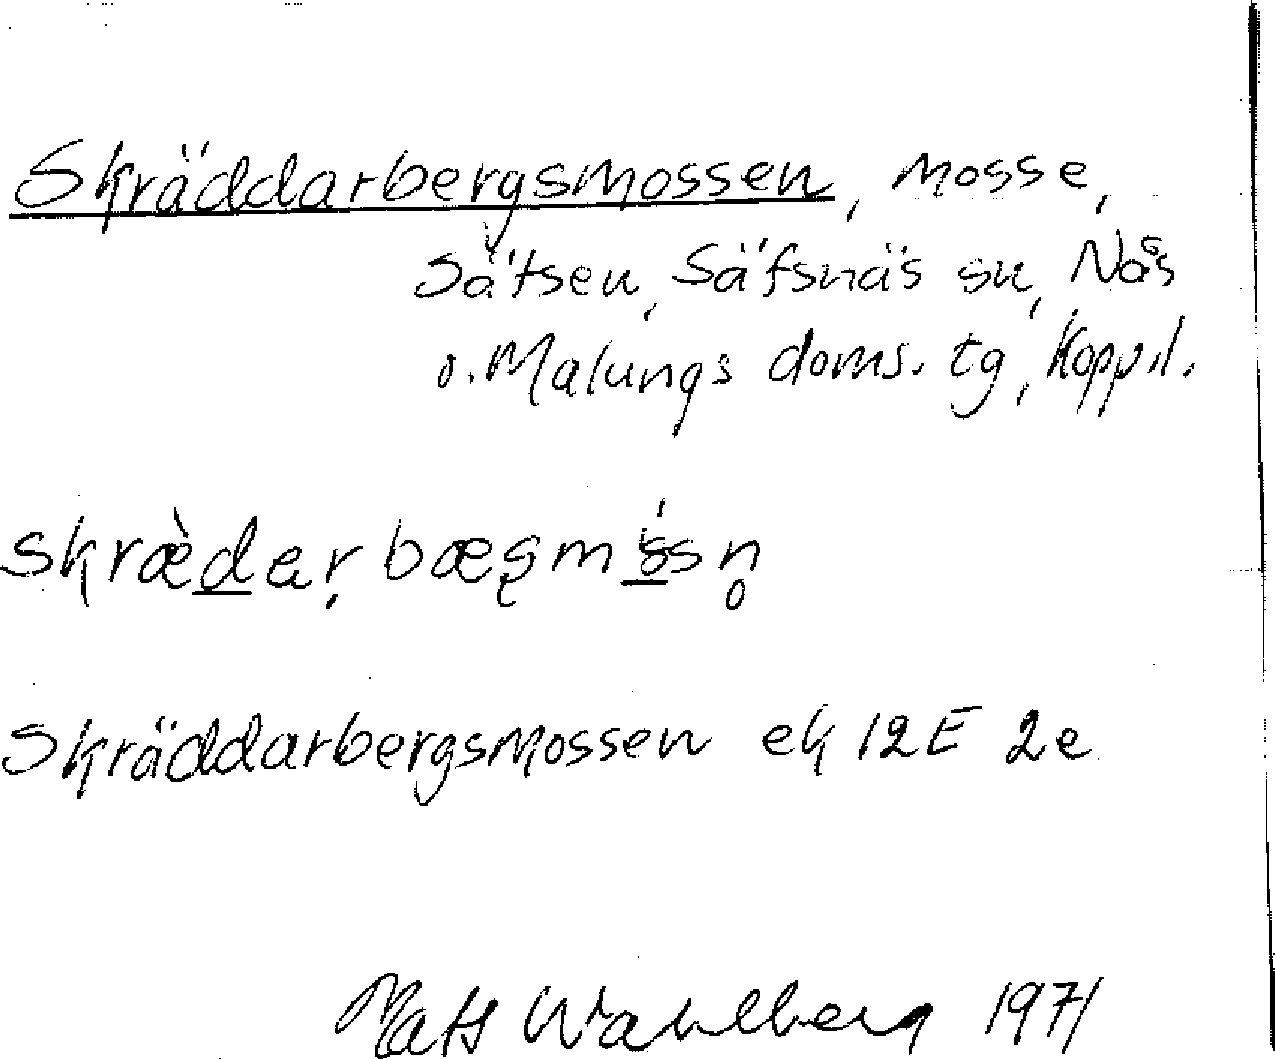 Skräddarbergsmossen, mosse,
Sätsen, Säfsnäs sn, Nås
o. Malungs doms. tg, Kopp. l.
Skräddarbergsmossen ek 12E 2e
Mats Wahlberg 1971